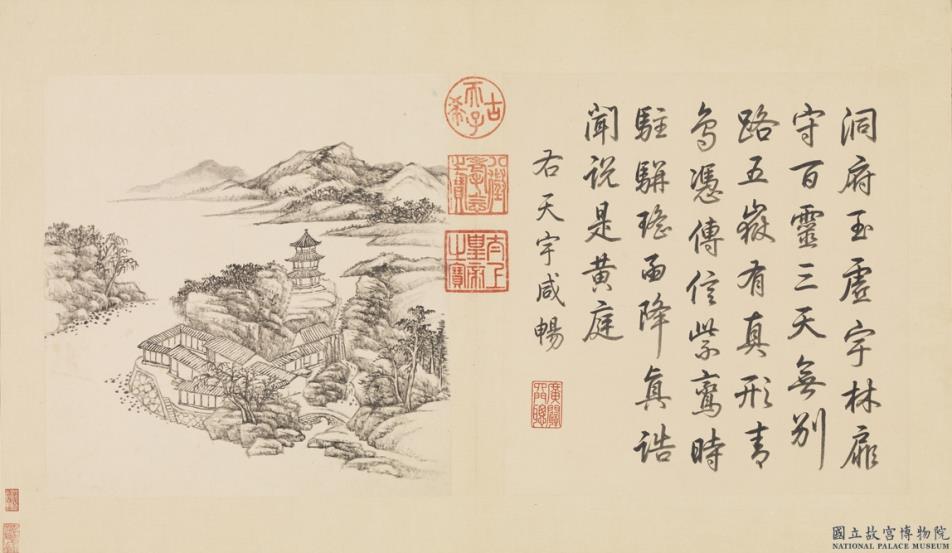 洞府玉虛宇林扉
守百靈三天無別
路五嶽有真形青
鳥憑傳信紫鸞時
駐駢瑤函降真誥
聞說是黃庭
右天宇咸暢
古希天子
八徵耄念之寶
太上皇帝之寶
國立故宮博物院
NATIONAL PALACE MUSEUM